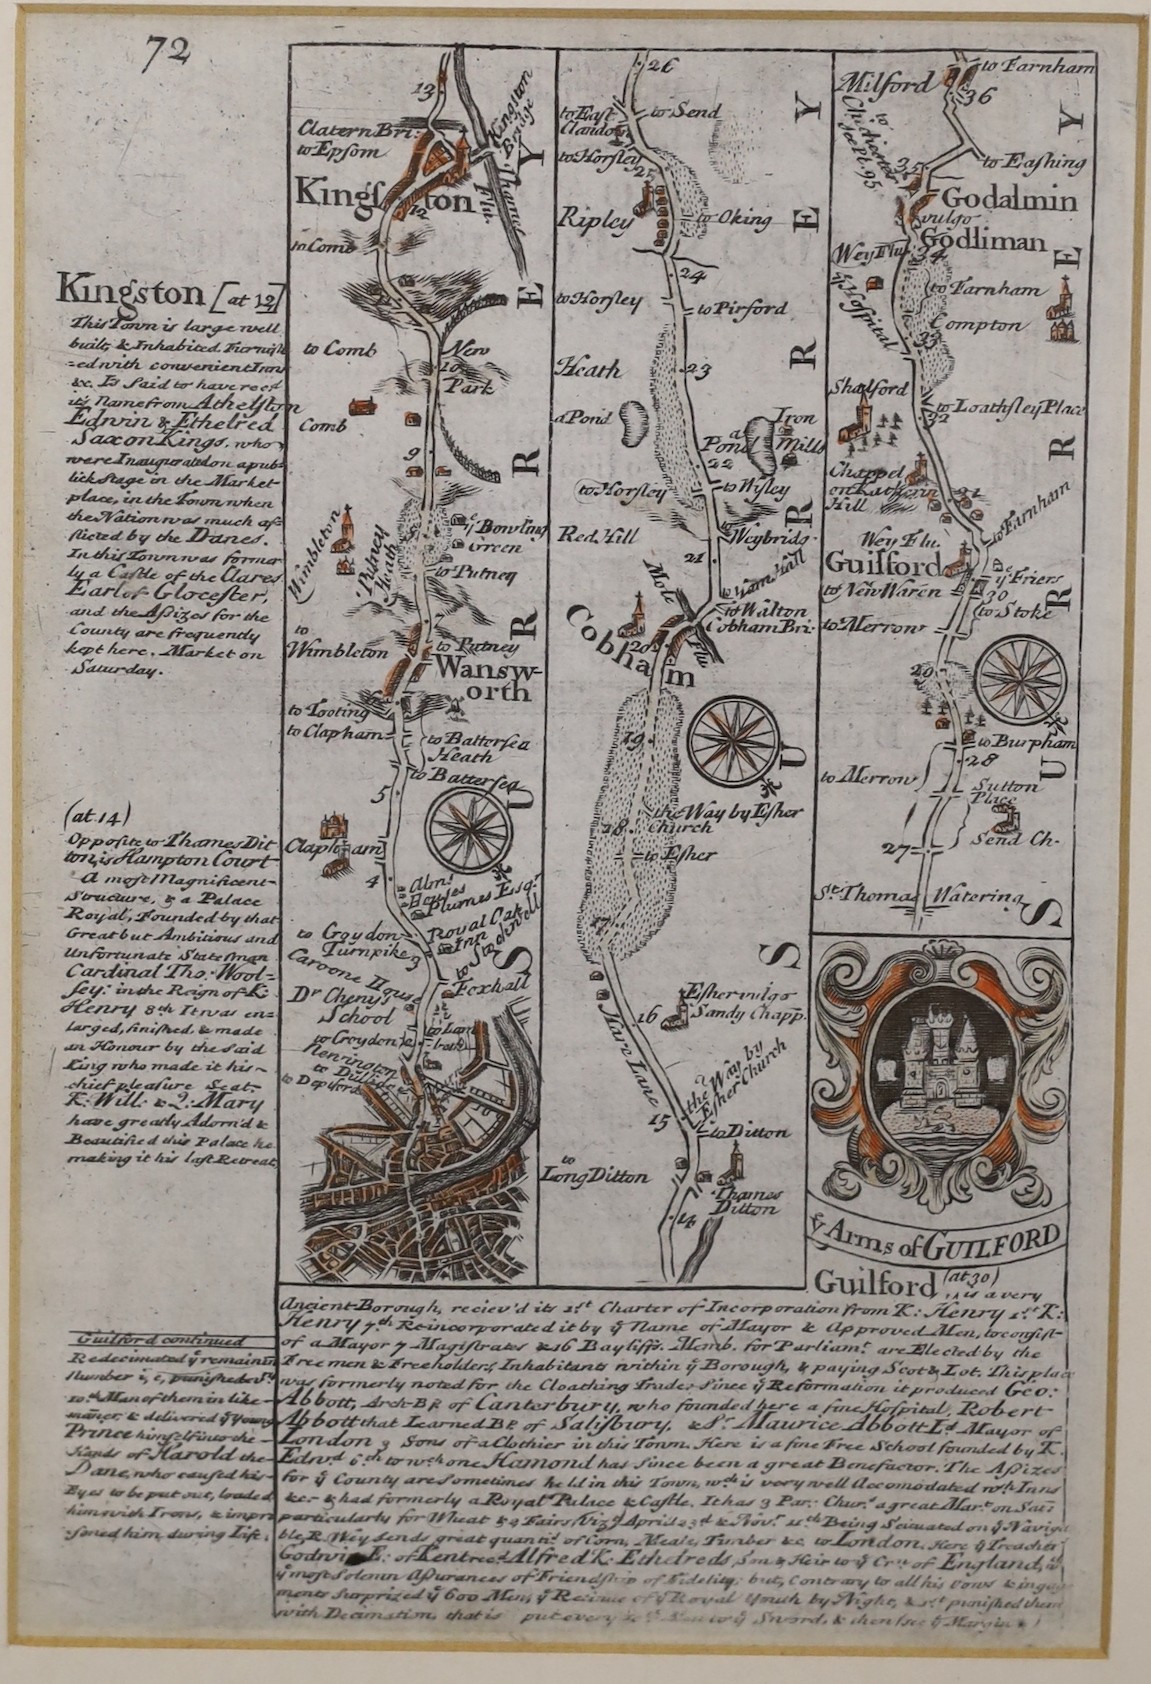 72
Kingston [at 12]
This Town is large well
built, & Inhabited Furnish
=ed with convenient Inns
&c. Is Said to have recd
its Name from Athelston
Edwin & Ethelred
Saxon Kings, who
were Inaugurated on a pub=
lick Stage in the Market
place, in the Town when
the Nation was much af=
flicted by the Danes.
In this Town was former
ly a Castle of the Clares
Earl of Glocester,
and the Aſsizes for the
County are frequently
kept here. Market on
Saturday.
(at 14)
Opposite to Thames Dit
ton, is Hampton Court
A most Magnificent
Structure, & a Palace
Royal, Founded by that
Great but Ambitious and
Unfortunate Statesman
Cardinal Tho: Wool=
sey: in the Reign of K:
Henry 8th It was en=
larged, finished, & made
an Honour by the said
King who made it his
chief pleasure Seat
K: Will: & Q: Mary
have greatly Adorn'd &
Beautified this Palace he
making it his last Retreat
Guilford continued
Redecimated ye remainin
Number i, e, punished ye
10th Man of them in like
maner, & delivered ye young
Prince himself into the
Hands of Harold the
Dane, who caused his
Eyes to be put out, loaded
him with Irons, & impri
soned him during Life.
13
Clatern Bri:
to Epsom
Kingston Bridge
Thamis Flu:
Kingſton
12
to Comb
11
to Comb
New
10
Park
Comb
9
Wimbleton
Putney Heath
ye Bowling
Green
to Putney
7
to
Wimbleton
to Putney
Wansw-
orth
to Tooting
to Clapham
to Battersea
Heath
to Battersea
5
Clapham
4
Alms
Houses
Plumes Esqr.
Royal Oak
Inn
to Stockwell
to Croydon
Turnpike 3
Caroone House
Foxhall
Dr Cheny's
School
to Lam
beth
to Croydon
Kennington
to Dullige
to Depford
SURREY
26
to East
Clandon
to Send
to Horsley
25
Ripley
to Oking
24
to Horsley
to Pirford
Heath
23
a Pond
a
Pond
Iron
Mills
22
to Horsley
to Wisley
Red Hill
to Weybridg
21
Mole
Flu
to Ham Hall
to Walton
Cobham Bri:
Cobham
20
19
the Way by Esher
Church
18
to Esher
17
Hare Lane
16
Esher vulgo
Sandy Chapp.
the Way by
Esher Church
15
to Ditton
to
Long Ditton
Thames
Ditton
14
SURREY
Milford
to Farnham
36
to Chichester
see Pt. 95
to Eashing
35
Godalmin
vulgo
Godliman
Wey Flu
34
Hospital
to Farnham
Compton
33
Shalford
to Loathsley Place
32
Chappel
on Kathern
Hill
31
to Farnham
Wey Flu.
Guilford
to New Waren
ye Friers
30
to Stoke
to Merrow
29
to Burpham
28
to Merrow
Sutton
Place
Send Ch.
27
St. Thomas Watering
SURREY
ye Arms of GUILFORD
Guilford (at 30) is a very
Ancient Borough, reciev'd its 1st Charter of Incorporation from K: Henry 1st K:
Henry 7th Reincorporated it by ye Name of Mayor & Approved Men, to consist
of a Mayor 7 Magistrates & 16 Bayliffs. Memb. for Parliamt. are Elected by the
Freemen & Freeholders, Inhabitants within ye Borough, & paying Scot & Lot. This place
was formerly noted for the Cloathing Trade, Since ye Reformation it produced Geo:
Abbott, Arch-Bp. of Canterbury, who founded here a fine Hospital, Robert
Abbott that Learned Bp. of Salisbury, & Sr. Maurice Abbott Ld Mayor of
London 3 Sons of a Clothier in this Town. Here is a fine Free School founded by K.
Edwd 6th to wch one Hamond has Since been a great Benefactor. The Aſsizes
for ye County are sometimes held in this Town, wch is very well Accomodated wth Inns
&c. & had formerly a Royal Palace & Castle. It has 3 Par: Chur. a great Mart. on Satr
particularly for Wheat & 2 Fairs (Viz) April 23d & Novr. 11th Being Scituated on ye Naviga
ble R. Wey sends great quanti. of Corn, Meale, Timber &c. to London. Here ye Treacher
Godwin E: of Kent recd Alfred K: Ethelreds, Son & Heir to ye Crn. of England,
ye most Solemn Aſsurances of Friendship of Fidelity; but, Contrary to all his Vows & ingag
ments Surprized ye 600 Men, ye Retinue of ye Royal Youth by Night, & 1st punished them
with Decimation that is put every to ye Sword, & then (see ye Margin)